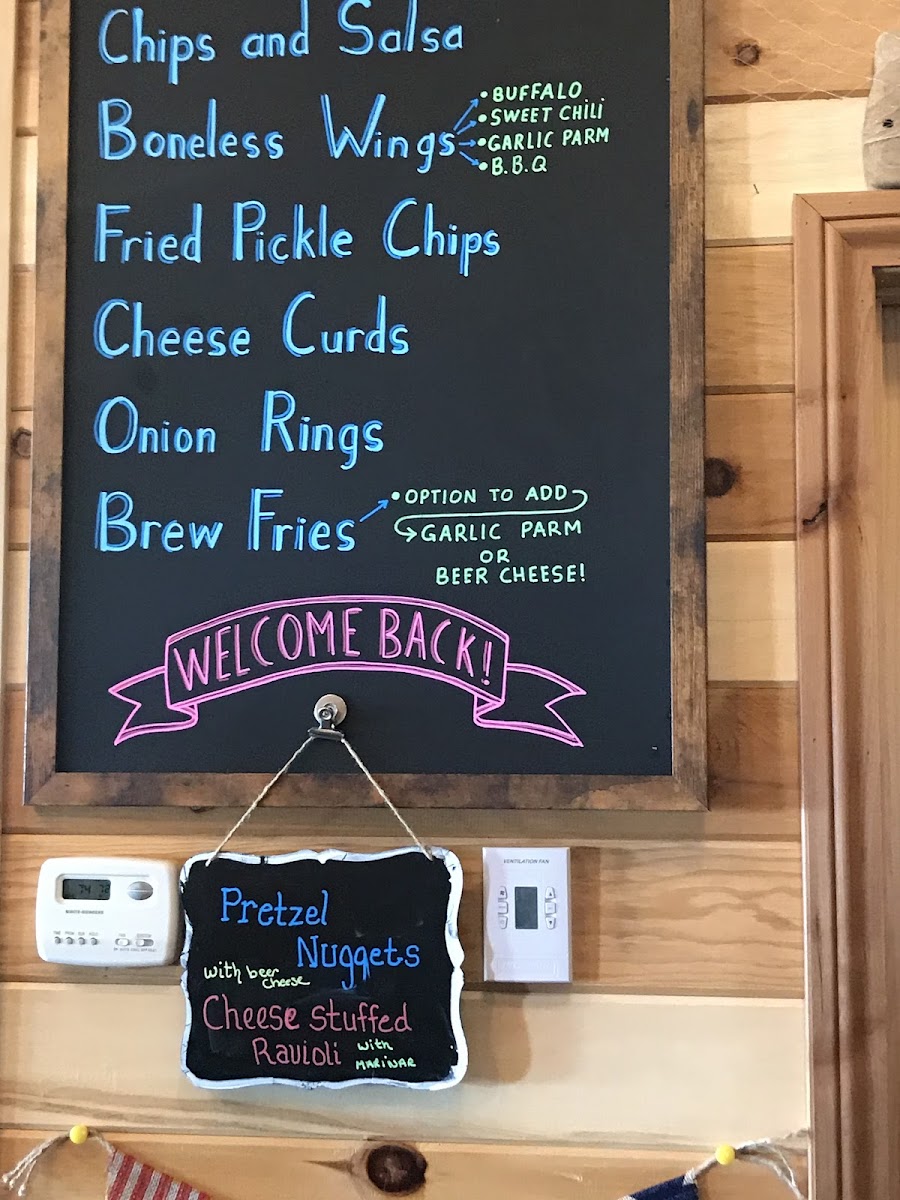 Chips and Salsa
Boneless Wings
• BUFFALO
• SWEET CHiLi
• GARLIC PARM
• B.B.Q
Fried Pickle Chips
Cheese Curds
Onion Rings
Brew Fries
• OPTION TO ADD
GARLIC PARM
OR
BEER CHEESE!
WELCOME BACK!
VENTILATION FAN
74
Pretzel
Nuggets
with beer
cheese
Cheese stuffed
Ravioli with
MARINAR